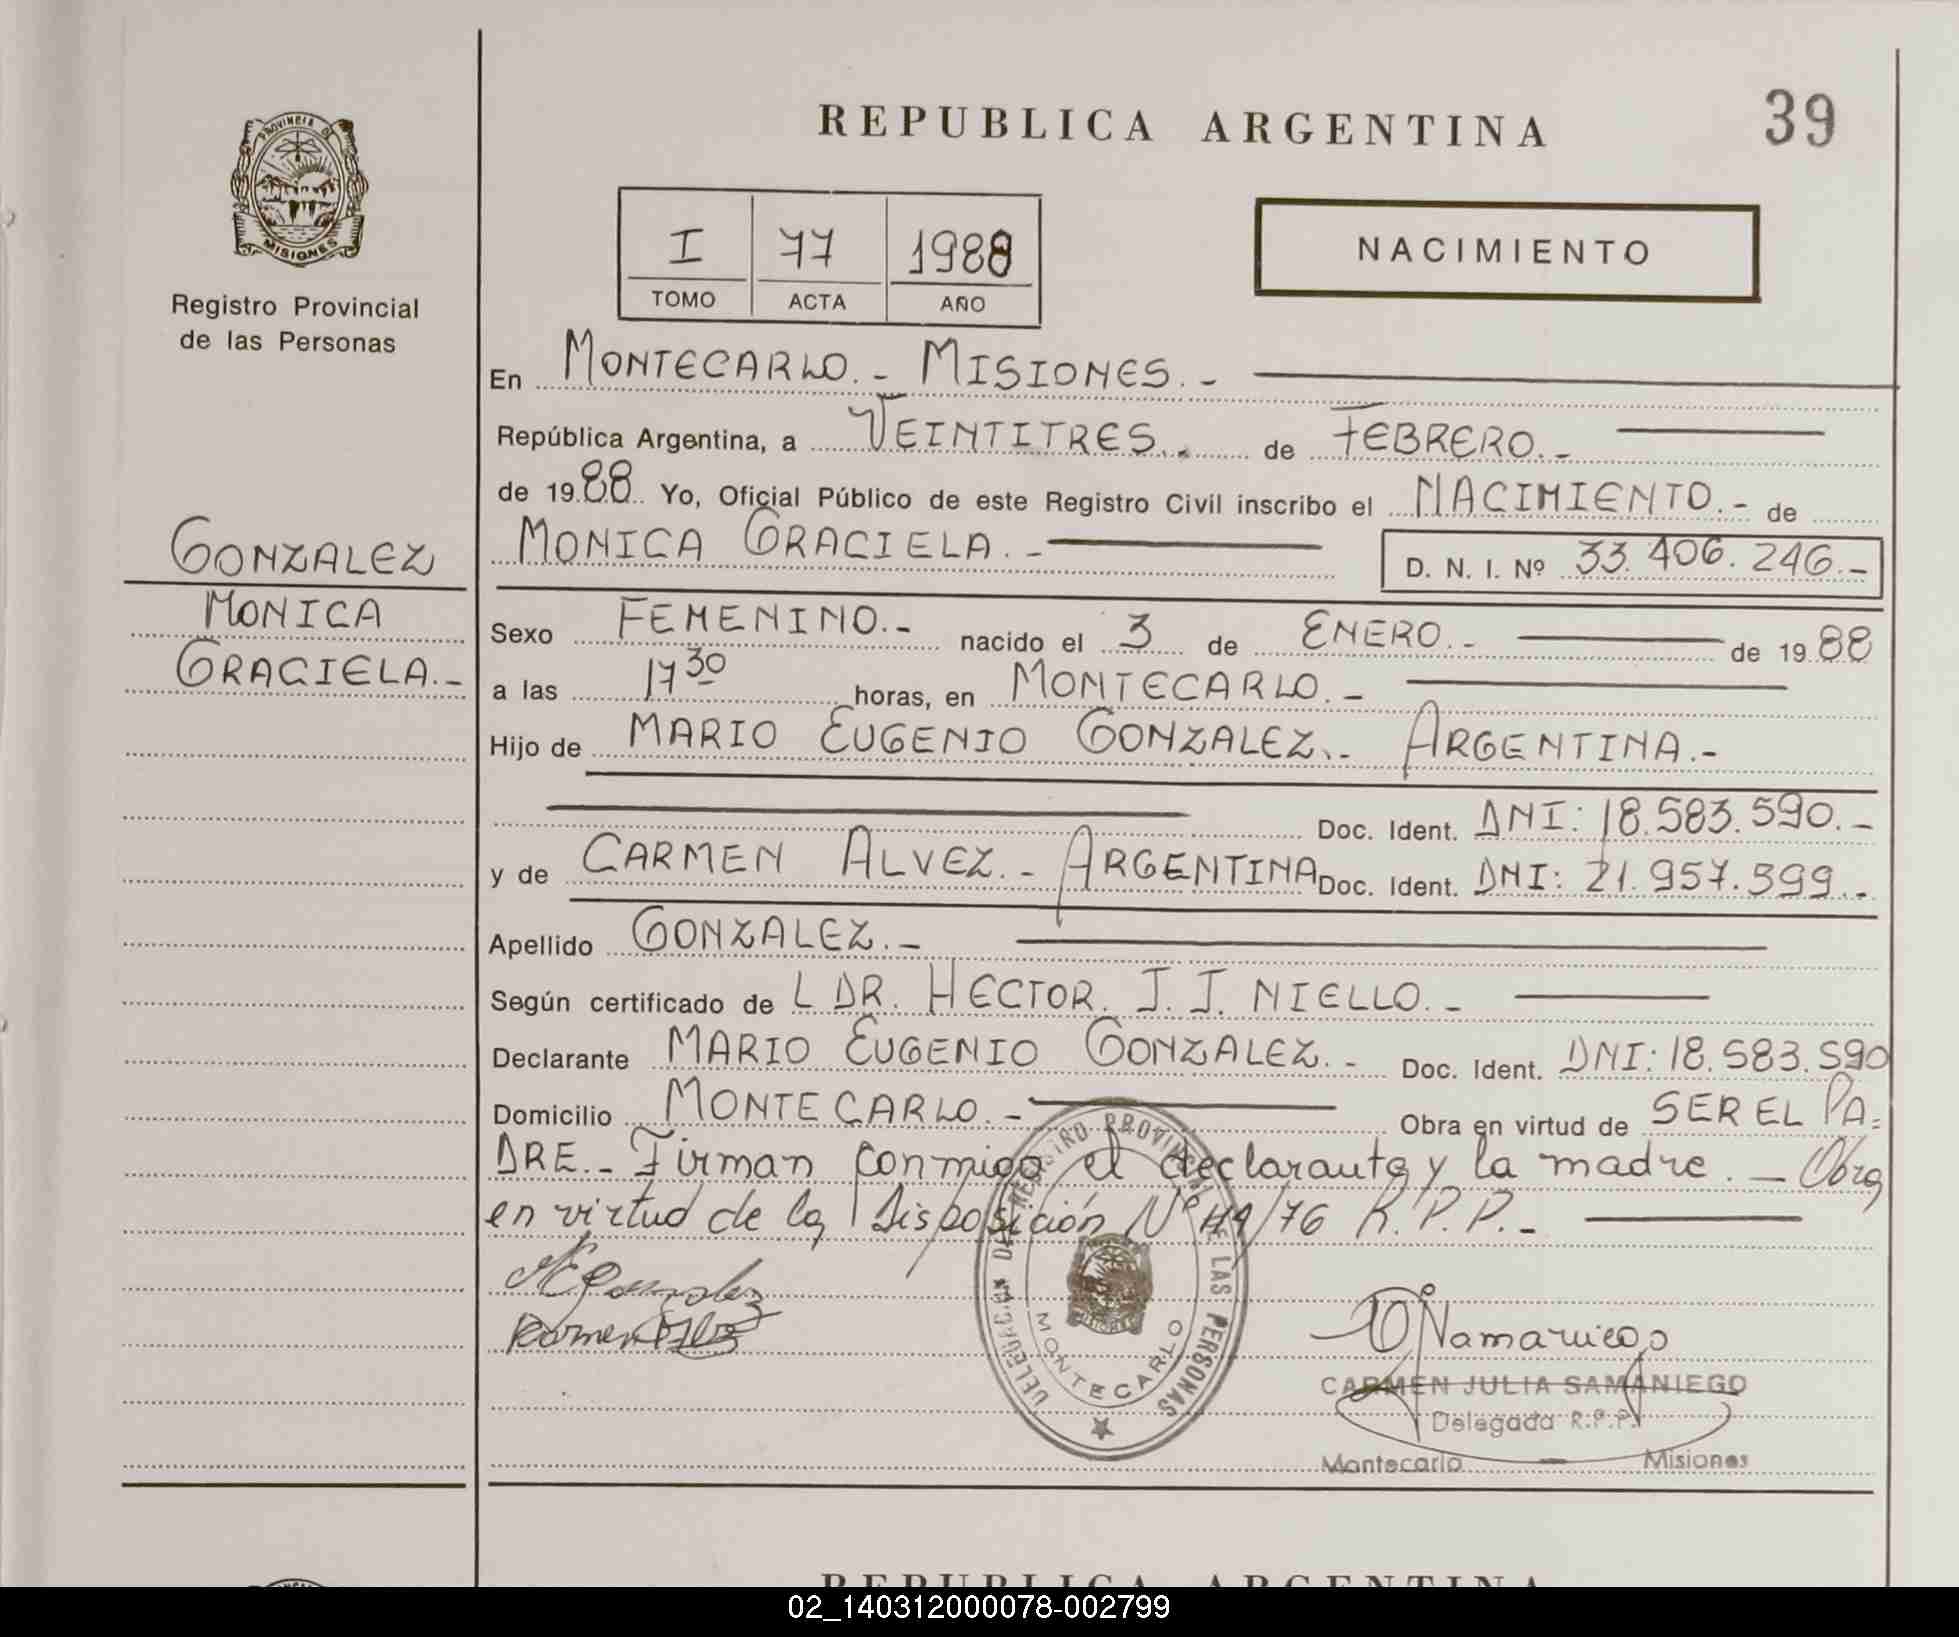 REPUBLICA ARGENTINA
39
PROVINCIA DE
MISIONES
Registro Provincial
de las Personas
I 77 1988
TOMO ACTA AÑO
NACIMIENTO
En MONTECARLO.- MISIONES.-
República Argentina, a VEINTITRES.- de FEBRERO.-
de 1988 Yo, Oficial Público de este Registro Civil inscribo el NACIMIENTO.- de
MONICA GRACIELA.- D. N. I. Nº 33.406.246.-
GONZALEZ
MONICA
GRACIELA.-
Sexo FEMENINO.- nacido el 3 de ENERO.- de 1988
a las 17 30 horas, en MONTECARLO.-
Hijo de MARIO EUGENIO GONZALEZ.- ARGENTINA.-
Doc. Ident. DNI: 18.583.590.-
y de CARMEN ALVEZ.- ARGENTINA Doc. Ident. DNI: 21.957.399.-
Apellido GONZALEZ.-
Según certificado de L DR. HECTOR. J. J. NIELLO.-
Declarante MARIO EUGENIO GONZALEZ.- Doc. Ident. DNI: 18.583.590
Domicilio MONTECARLO.- Obra en virtud de SER EL PA=
DRE.- Firman conmigo el declarante y la madre.- Obra
en virtud de la Disposición Nº 119/76 R.P.P.-
DELEGACION DEL REGISTRO PROVINCIAL DE LAS PERSONAS
MONTECARLO
CARMEN JULIA SAMANIEGO
Delegada R.P.P.
Montecarlo - Misiones
REPUBLICA ARGENTINA
02_140312000078-002799